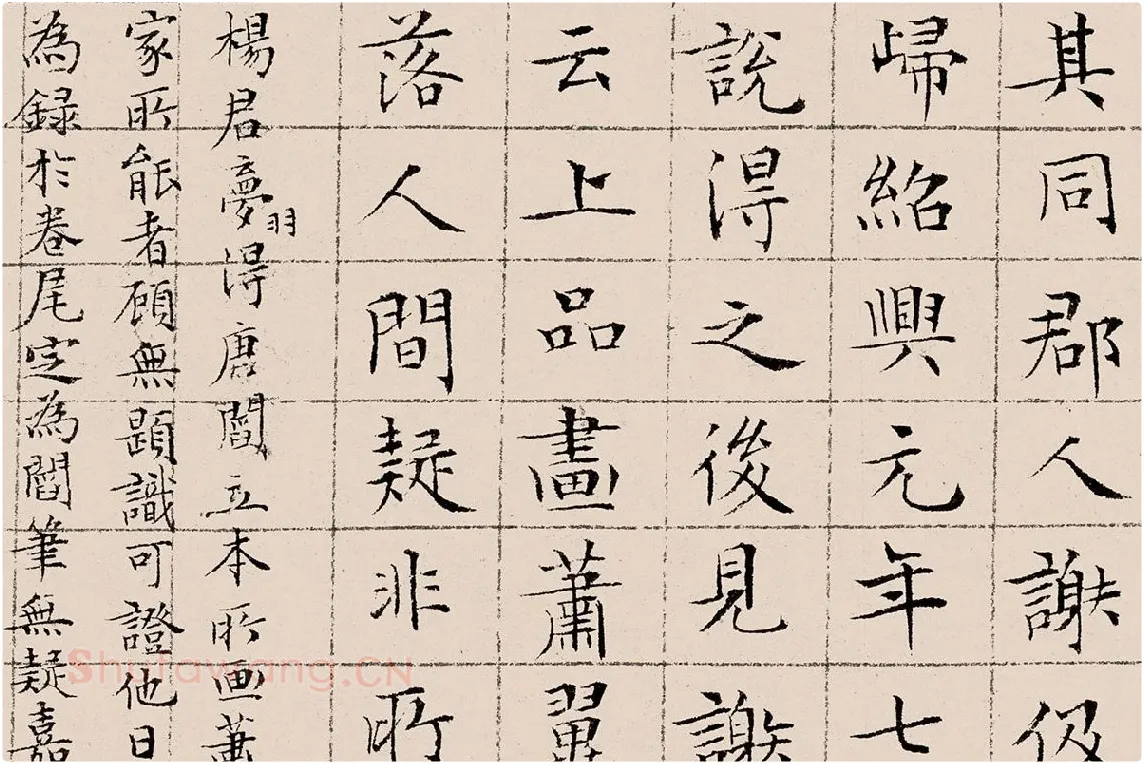 其同郡人謝伋
歸紹興元年七
說得之後見謝
云上品畫蕭翼
落人間疑非所
楊君夢羽得唐閻立本所画蕭
家所能者顧無題識可證他日
為録於卷尾定為閻筆無疑嘉
Shufawang.CN